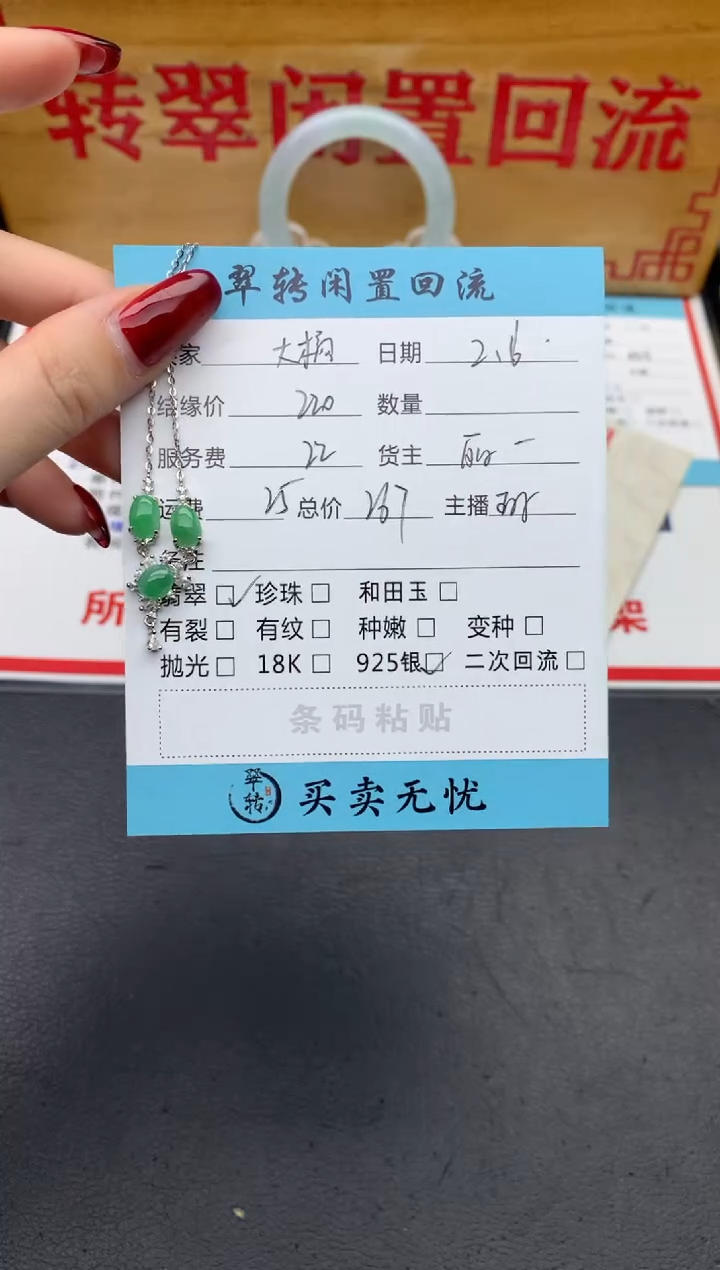 转翠闲置回流
翠转闲置回流
家 大桶 日期 2.6
结缘价 220 数量
服务费 22 货主
运费 25 总价 267 主播
备注
翡翠□✓ 珍珠□ 和田玉□
有裂□ 有纹□ 种嫩□ 变种□
抛光□ 18K□ 925银□✓ 二次回流□
条码粘贴
翠转 买卖无忧
所
架